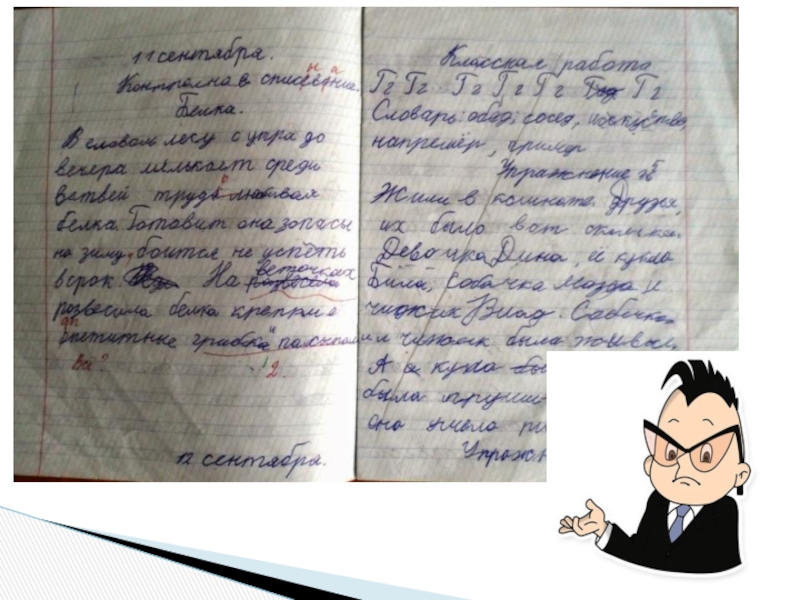 11 сентября.
Контролна в списевание.
н а
Белка.
В еловом лесу с утра до
вечера мялькает среди
ветвей трудолюбивая
белка. Готовит она зопасы
на зиму, боится не успеть
в срок. На веточках
развесила белка крепкие
апетитные грибки
ап
и
Ва? 1 2.
12 сентября.
Классная работа
Гг Гг Гг Гг Гг Гг
Словарь: обед, сосед, искуство,
напремер, пример
Упражнение
Жили в комнате друзья,
их было вот сколько.
Девочка Дина, её кукла
Била, собачка Магда и
чижик Влад. Собачка
и чижик была
А а кукла
была
она умела
Упражн